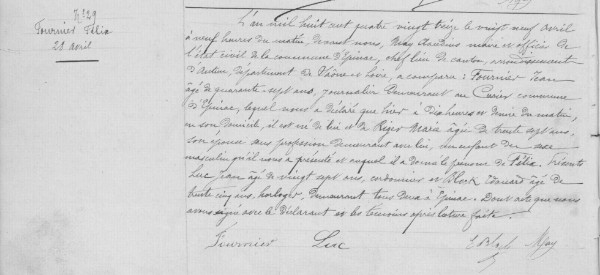 N° 29
Fournier Félix
28 Avril
L'an mil huit cent quatre vingt treize le vingt neuf avril
à neuf heures du matin, devant nous, May Claudius maire et officier de
l'état civil de la commune d'Epinac, chef lieu de canton, arrondissement
d'Autun, département de Saône et Loire, a comparu : Fournier Jean
âgé de quarante sept ans, journalier demeurant au Curier commune
d'Epinac, lequel nous a déclaré que hier à dix heures et demie du matin,
en son domicile, il est né de lui et de Régis Maria âgée de trente sept ans,
son épouse sans profession demeurant avec lui, un enfant du sexe
masculin qu'il nous a présenté et auquel il a donné le prénom de Félix. Présents
Luc Jean âgé de vingt sept ans, cordonnier et Block Edouard âgé de
trente cinq ans, horloger, demeurant tous deux à Epinac. Dont acte que nous
avons signé avec le déclarant et les témoins après lecture faite.
Fournier Luc E Block May